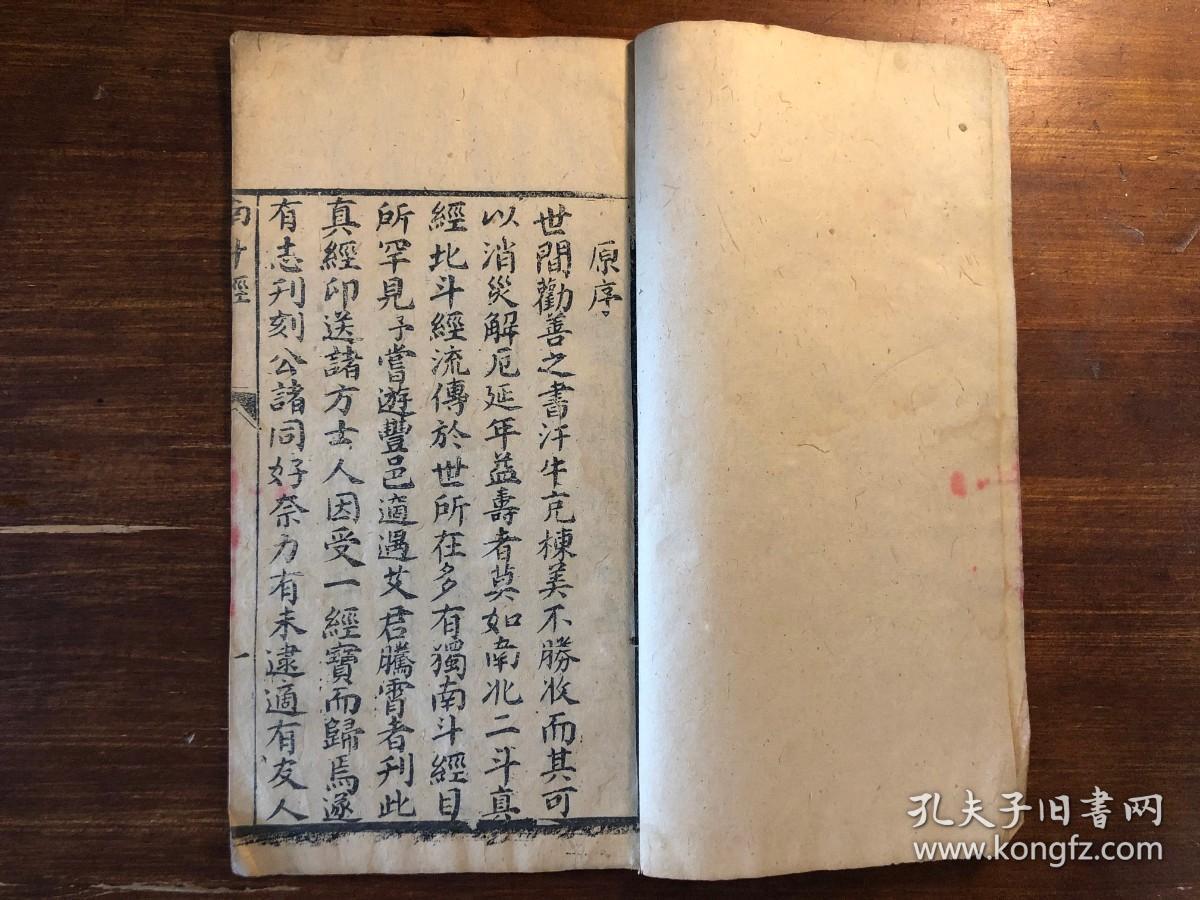 原序
世間勸善之書汗牛充棟美不勝收而其可
以消災解厄延年益壽者莫如南北二斗真
經北斗經流傳於世所在多有獨南斗經目
所罕見予嘗遊豐邑適遇艾君騰霄者刊此
真經印送諸方士人因受一經寶而歸焉遂
有志刊刻公諸同好奈力有未逮適有友人
南斗經
一
孔夫子旧书网
www.kongfz.com